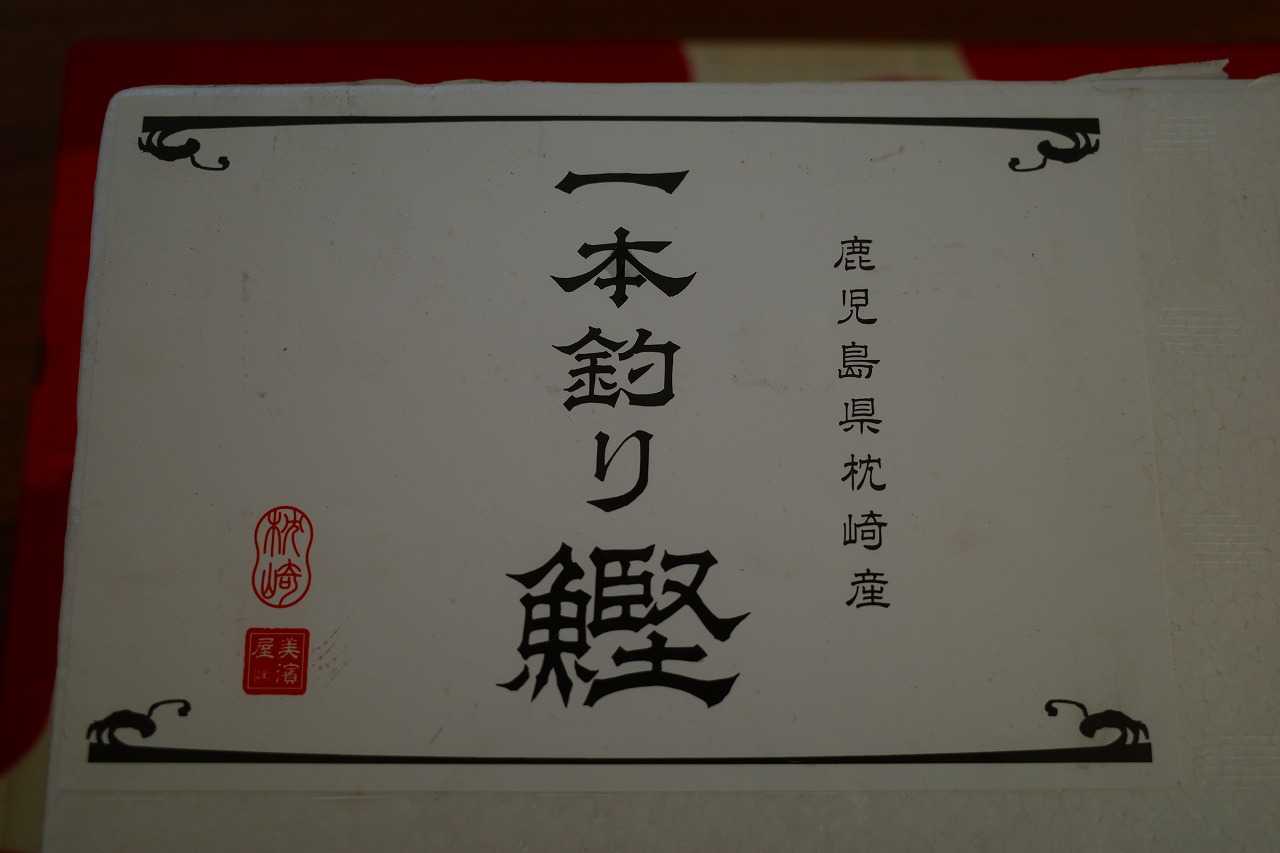 鹿児島県枕崎産
一本釣り鰹
枕崎
美濱
屋